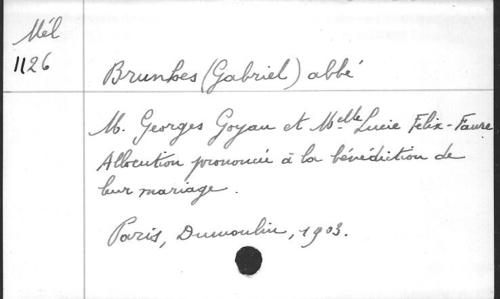 Mél
1126
Brunhes (Gabriel) abbé
M. Georges Goyau et Melle Lucie Felix-Faure
Allocution prononcée à la bénédiction de
leur mariage.
Paris, Dumoulin, 1903.